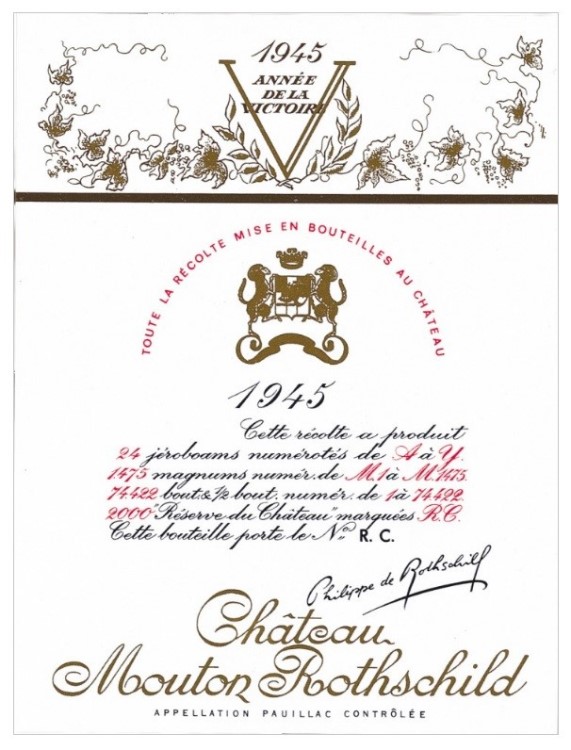 1945
ANNÉE
DE LA
VICTOIRE
TOUTE LA RÉCOLTE MISE EN BOUTEILLES AU CHÂTEAU
1945
Cette récolte a produit
24 jéroboams numérotés de A à Y.
1475 magnums numér. de M.1 à M.1475.
74422 bout. & ½ bout. numér. de 1 à 74422.
2000 "Réserve du Château" marquées R.C.
Cette bouteille porte le No R. C.
Philippe de Rothschild
Château
Mouton Rothschild
APPELLATION PAUILLAC CONTRÔLÉE